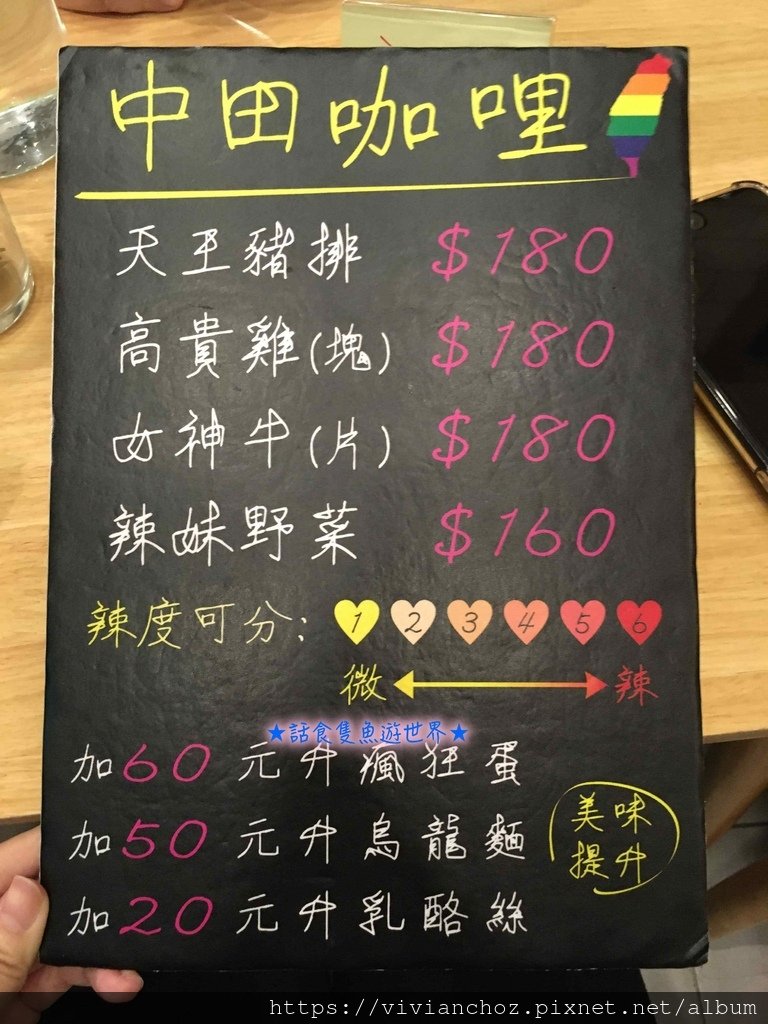 中田咖哩
天王豬排 $180
高貴雞(塊) $180
女神牛(片) $180
辣妹野菜 $160
辣度可分: 1 2 3 4 5 6
微 辣
★話食隻魚遊世界★
加60元升瘋狂蛋
加50元升烏龍麵
加20元升乳酪絲
美味
提升
https://vivianchoz.pixnet.net/album